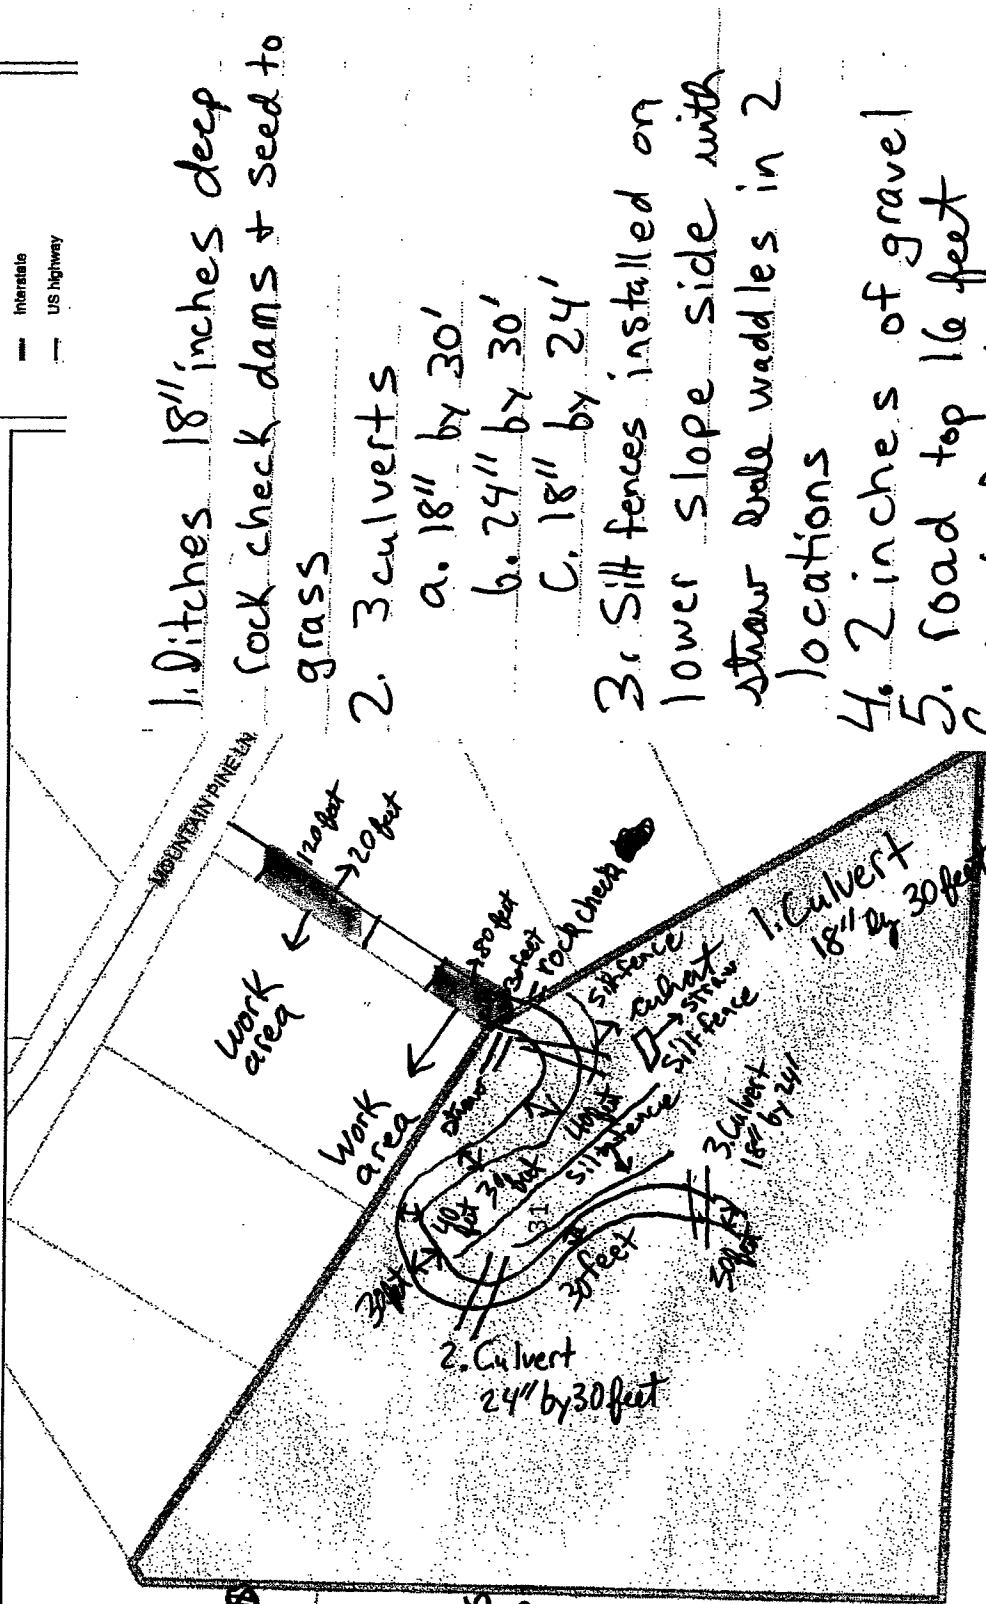 Interstate
US highway
1. Ditches 18" inches deep
rock check dams + seed to
grass
2. 3 culverts
a. 18" by 30'
b. 24" by 30'
C. 18" by 24'
3. Silt fences installed on
lower slope side with
straw waddles in 2
locations
4. 2 inches of gravel
5. road top 16 feet
MOUNTAIN PINE LN
120 feet
20 feet
work
area
80 feet
30 feet
= rock check
Work
area
straw
silt fence
culvert
straw
silt fence
1. Culvert
18" by 30 feet
40 foot
30 foot
40
foot
silt fence
31
30 feet
3. Culvert
18" by 24'
50
foot
2. Culvert
24" by 30 feet